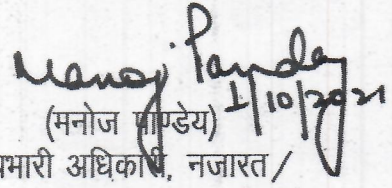 Manoj Panday
1/10/2021
(मनोज पाण्डेय)
प्रभारी अधिकारी, नजारत /